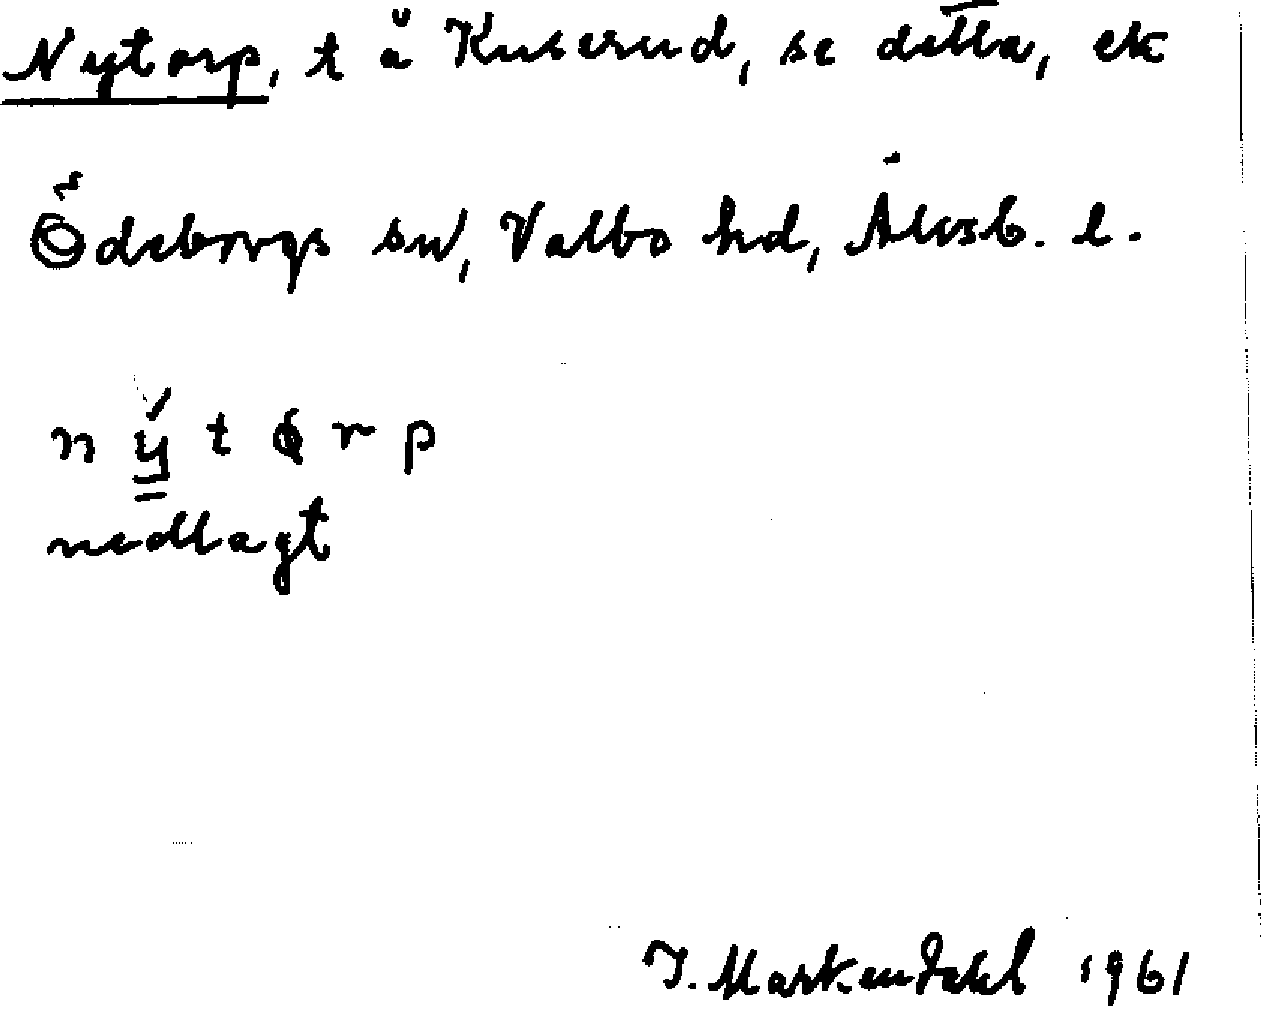 Nytorp, t å Kuserud, se detta, ek
Ödeborgs sn, Valbo hd, Älvsb. l.
n y t ɸ r p
nedlagt
J. Markendahl 1961